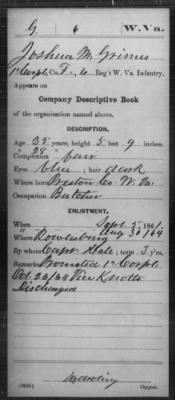 G 6 W. Va.
Joshua M. Grimes
1" Corpl, Co. F, 6 Reg't W. Va. Infantry.
Appears on
Company Descriptive Book
of the organization named above.
DESCRIPTION.
Age 25 years; height 5 feet 9 inches.
28
Complexion fair
Eyes blue; hair dark
Where born Preston Co. W. Va.
Occupation Butcher
ENLISTMENT.
When Sept. 5, 1861.
Aug 30 1864
Where Rowlesburg
By whom Capt. Hale; term 3 y'rs.
Remarks: Promoted 1" Corpl
Oct. 26/64 Vice Knotts
Discharged
Copyist.